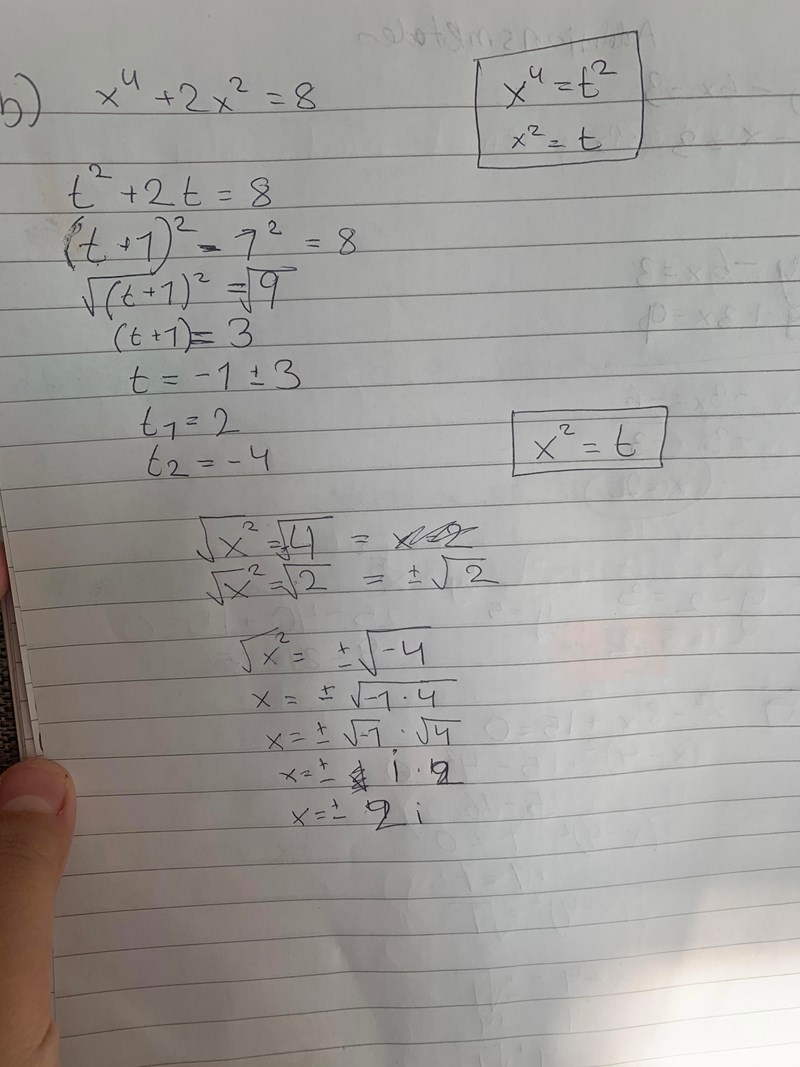 b) x⁴ + 2x² = 8
x⁴ = t²
x² = t
t² + 2t = 8
(t+1)² - 1² = 8
√(t+1)² = √9
(t+1) = 3
t = -1 ± 3
t₁ = 2
t₂ = -4
x² = t
√x² = √4 =
√x² = √2 = ± √2
√x² = ± √-4
x = ± √-1 · 4
x = ± √-1 · √4
x = ± i · 2
x = ± 2i